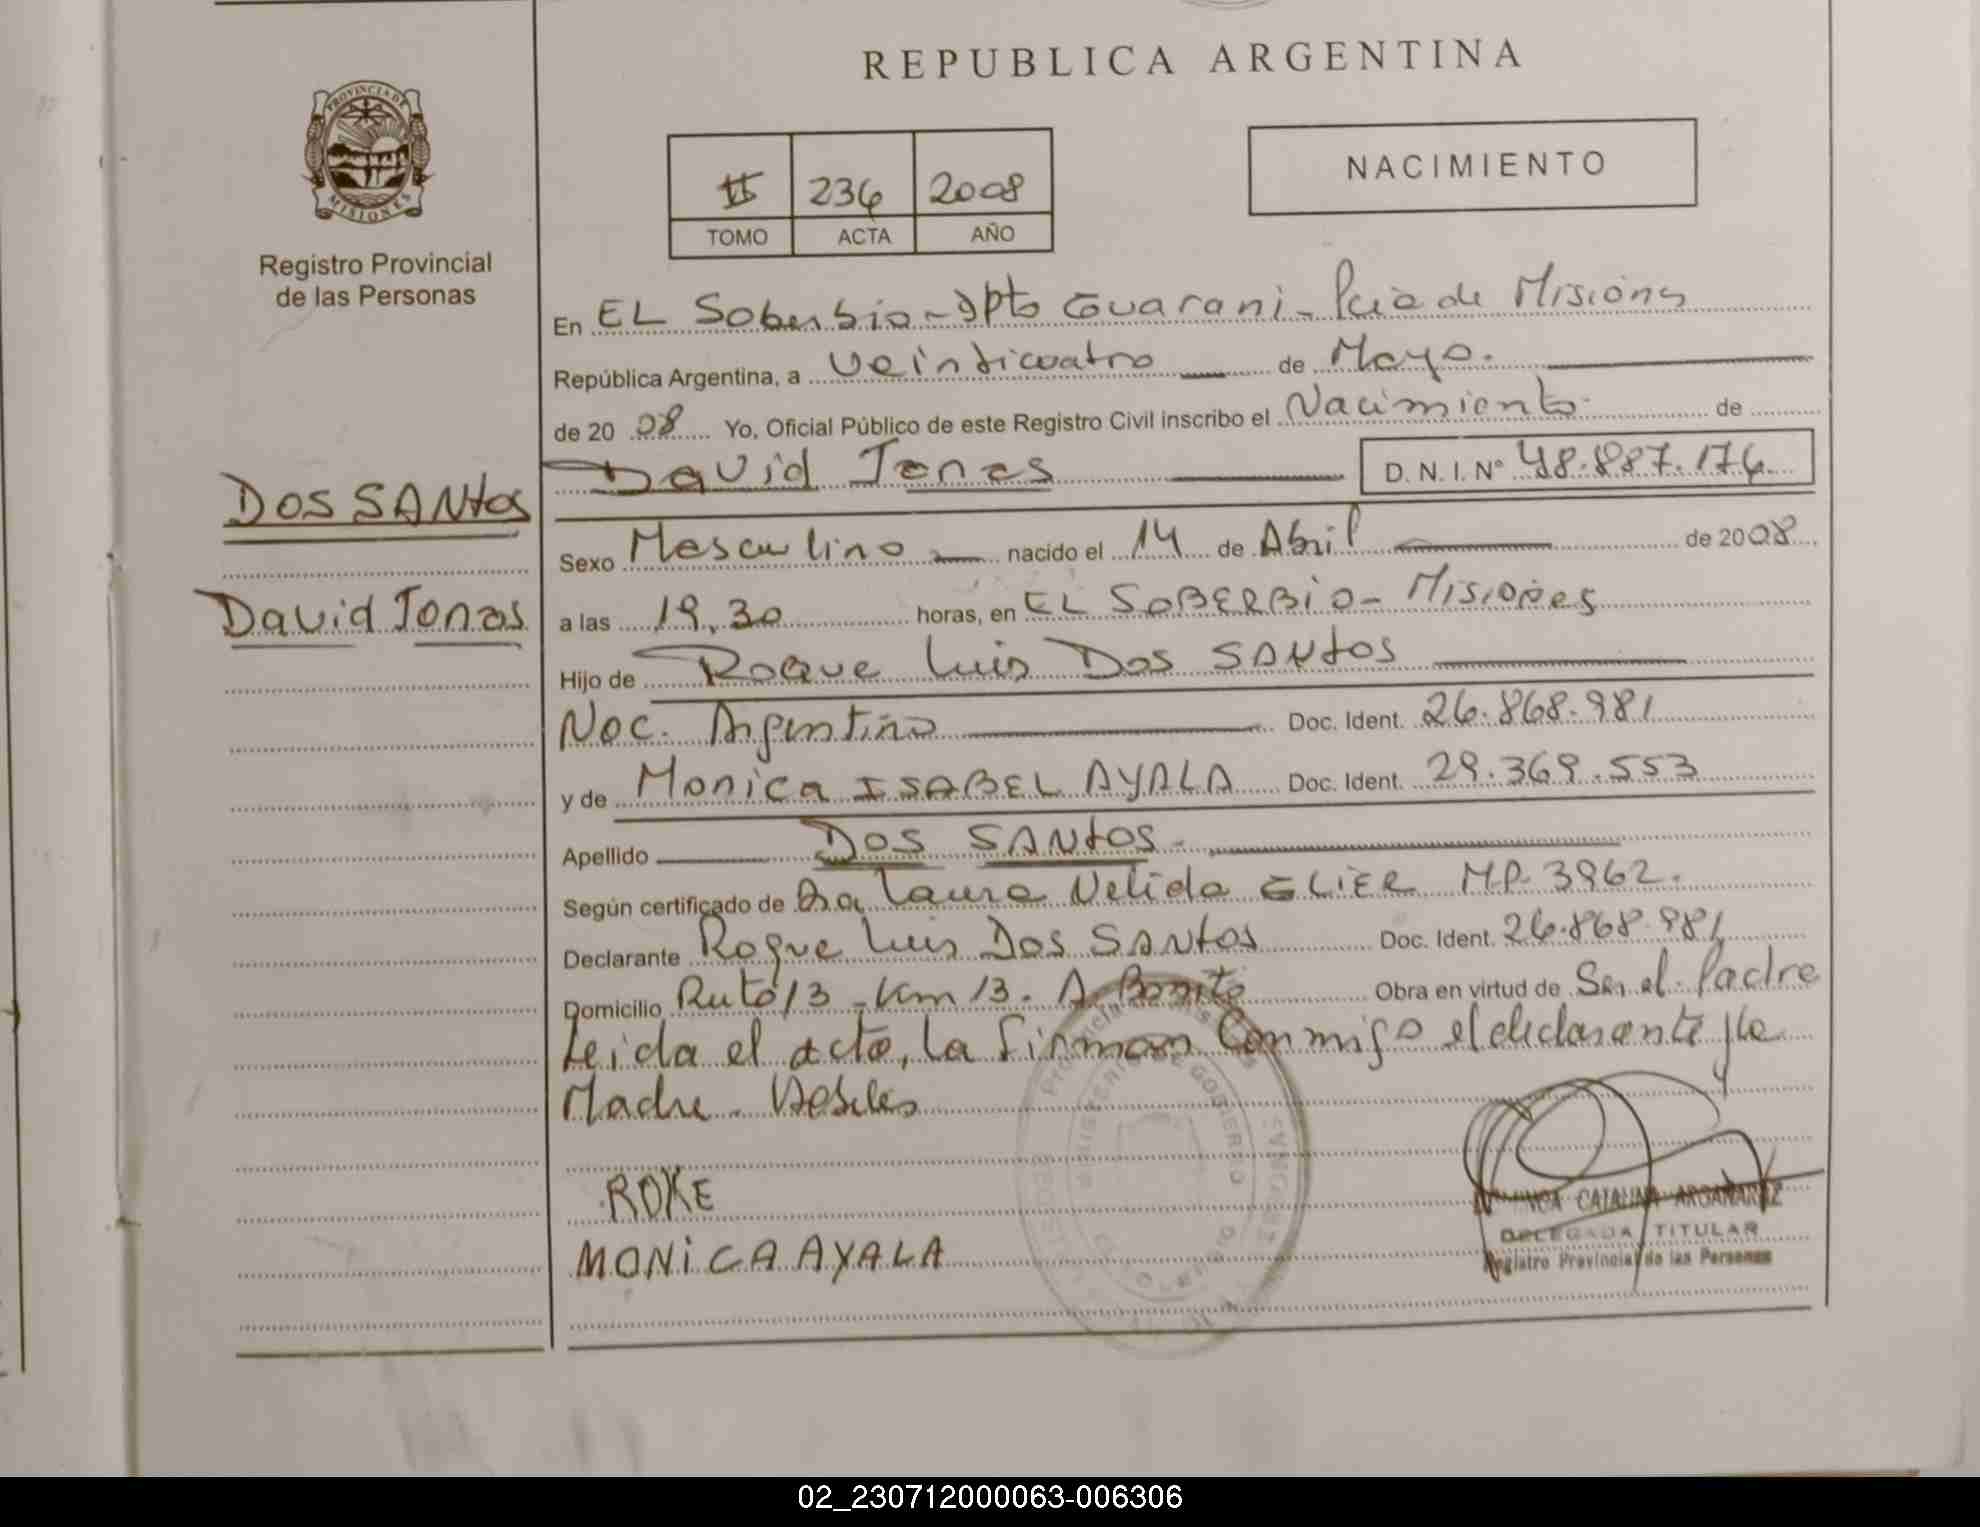 REPUBLICA ARGENTINA
PROVINCIA DE MISIONES
Registro Provincial
de las Personas
II 236 2008
TOMO ACTA AÑO
NACIMIENTO
En EL Soberbio - Dpto Guarani - Pcia de Misiones
República Argentina, a Veinticuatro de Mayo.
de 2008 Yo, Oficial Público de este Registro Civil inscribo el Nacimiento de
David Jonas D. N. I. Nº 48.887.176
DOS SANtos
David Jonas
Sexo Masculino nacido el 14 de Abril de 2008
a las 19,30 horas, en EL SOBERBIO - Misiones
Hijo de Roque Luis Dos SANtos
Nac. Argentino Doc. Ident. 26.868.981
y de Monica ISABEL AYALA Doc. Ident. 29.369.553
Apellido DOS SANtOS
Según certificado de Dra Laura Nelida GLIER M.P. 3962.
Declarante Roque Luis Dos SANtos Doc. Ident. 26.868.981
Domicilio Ruta 13 - Km 13. A. Bonito Obra en virtud de Ser el Padre
Leida el acta, la firman conmigo el declarante y la
Madre.
ROKE
MONiCA AYALA
CATALINA ARGAÑARAZ
DELEGADA TITULAR
Registro Provincial de las Personas
MINISTERIO DE GOBIERNO
02_230712000063-006306